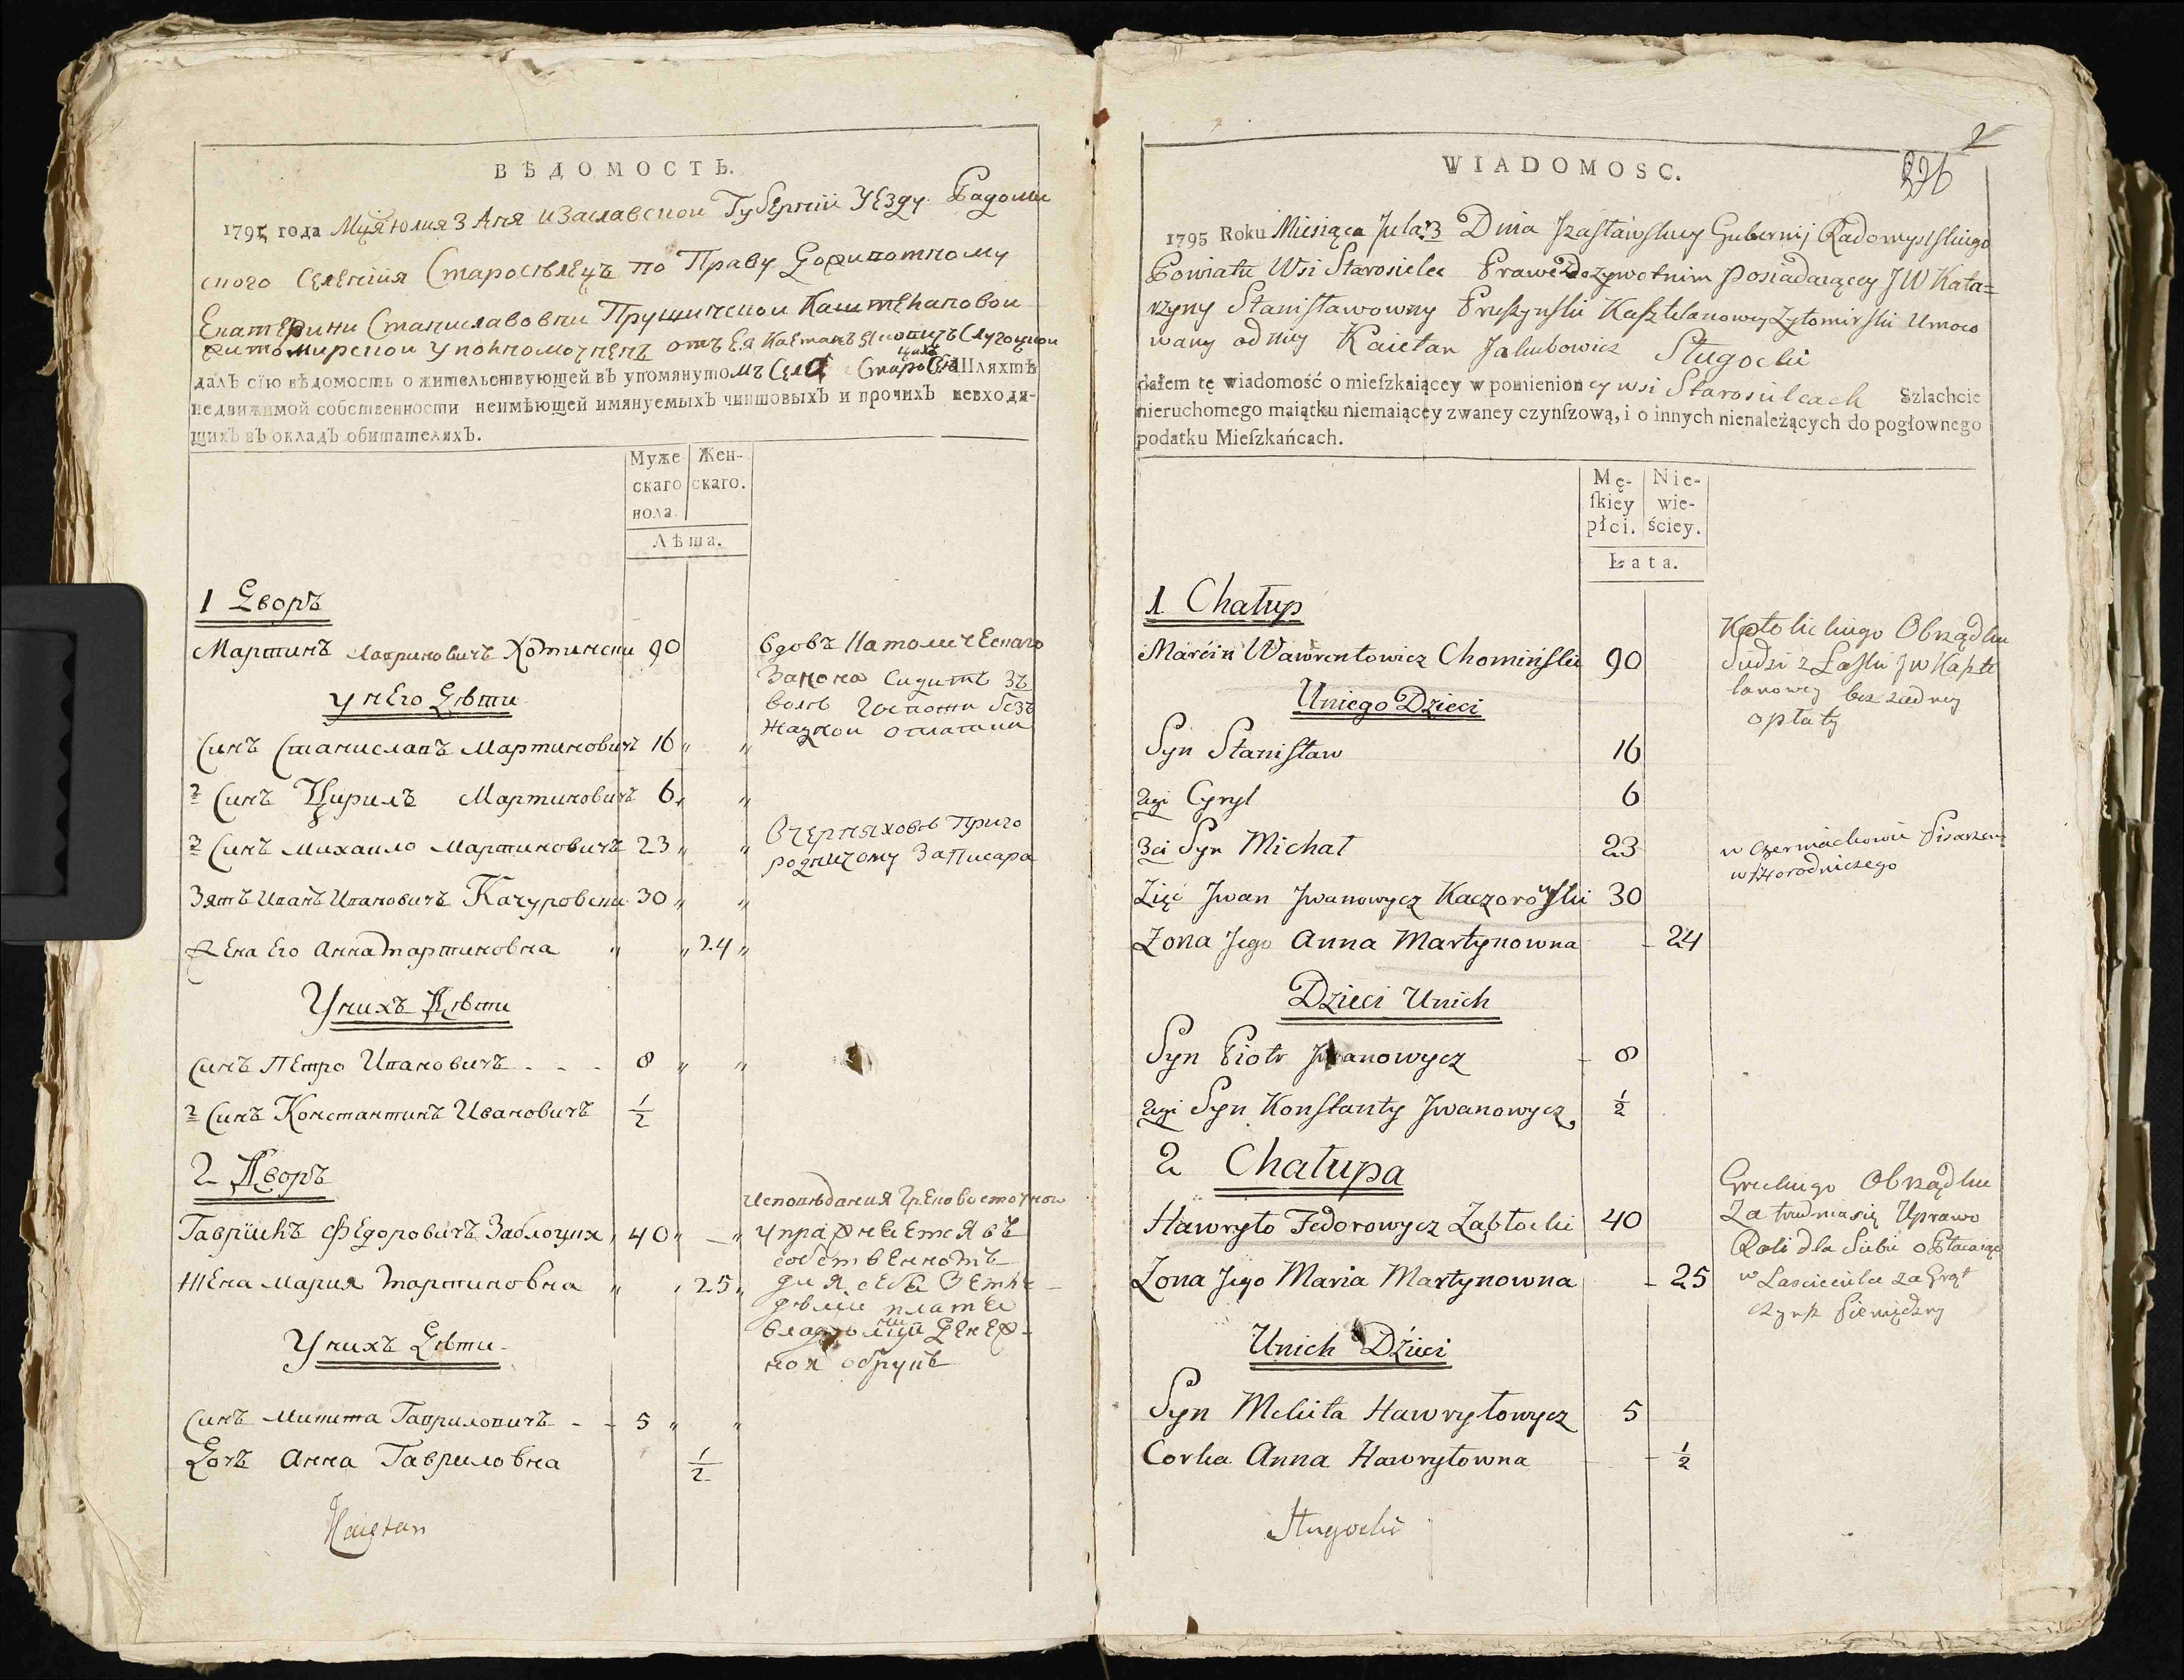 ВѢДОМОСТЬ.
1795 года Мця Июля 3 Дня Изаславской Губерніи Уезду Радоми
ского Селенія Старосѣлецъ по Праву Дожиготному
Екатерини Станиславовни Прушинской Каштеляновой
Житомирской Уполномоченъ отъ Ея Каетанъ Якопичъ Слугоцкои
далъ сїю вѣдомость о жительствующей въ упомянутомъ Селѣ Старосел Шляхтѣ
недвижимой собственности неимѣющей имянуемыхъ чиншовыхъ и прочихъ невходя-
щихъ въ окладъ обитателяхъ.
Муже Жен-
скаго скаго.
пола.
Лѣта.
1 Дворъ
Мартинъ Лавриновичъ Хотински 90
Вдовъ Католическаго
Закона Сидитъ Зъ
волѣ Госпожи безъ
Жадной оплати
У него Дѣти
Синъ Станиславъ Мартиновичъ 16 " "
2 Синъ Цирилъ Мартиновичъ 6 " "
3 Синъ Михаило Мартиновичъ 23 " "
Вчерняховѣ Приго
родничому За Писара
Зятъ Иванъ Ивановичъ Качуровски 30 " "
Жена Его Анна Мартиновна " " 24 "
Унихъ Дѣти
Синъ Петро Ивановичъ - - - 8 " "
2 Синъ Константинъ Ивановичъ 1/2
2 Дворъ
Исповѣданія Грековосточной
Гавріилъ Федоровичъ Заблоцки 40 " "
упражняется въ
собственность
Жена Мария Мартиновна " " 25 "
для себе Земле
дѣліи плате
владѣлци Денеж-
ной оброкъ
Унихъ Дѣти
Синъ Микита Гавриловичъ - - 5 " "
Дочъ Анна Гавриловна 1/2
Kaietan
2
226
WIADOMOSC.
1795 Roku Miesiąca Jula 3 Dnia Jzasławskiey Gubernij Radomyslskiego
Powiatu Wsi Starosielec Prawe Dożywotnim posiadaiącey JW Kata=
rzyny Stanisławowny Pruszynski Kasztelanowey Zytomirski Umoco
wany od niey Kaietan Jakubowicz Sługocki
dałem tę wiadomość o mieſzkaiącey w pomienioney wsi Starosielcach Szlachcie
nieruchomego maiątku niemaiącey zwaney czynſzową, i o innych nienależących do pogłownego
podatku Mieſzkańcach.
Mę- Nie-
ſkiey wie-
płci. ściey.
Łata.
1 Chałup
Katolickiego Obrządku
Siedzi z Łaski JW Kaszte
lanowey bez żadney
opłaty
Marcin Wawrentowicz Chomiński 90
Uniego Dzieci
Syn Stanisław 16
2gi Cyryl 6
3ci Syn Michał 23
w Czerniachowie Pisarzem
w Horodniczego
Zięć Jwan Jwanowycz Kaczorowski 30
Zona Jego Anna Martynowna - 24
Dzieci Unich
Syn Piotr Jwanowycz - 8
2gi Syn Konstanty Jwanowycz 1/2
2 Chałupa
Greckiego Obrządku
Zatrudnia się Uprawo
Roli dla Siebie opłacaiąc
w Łascicielce za Grąt
czynsz Pieniężny
Hawryło Fedorowycz Zabłocki 40
Zona Jego Maria Martynowna - 25
Unich Dzieci
Syn Mekita Hawryłowycz 5
Corka Anna Hawryłowna - 1/2
Sługocki